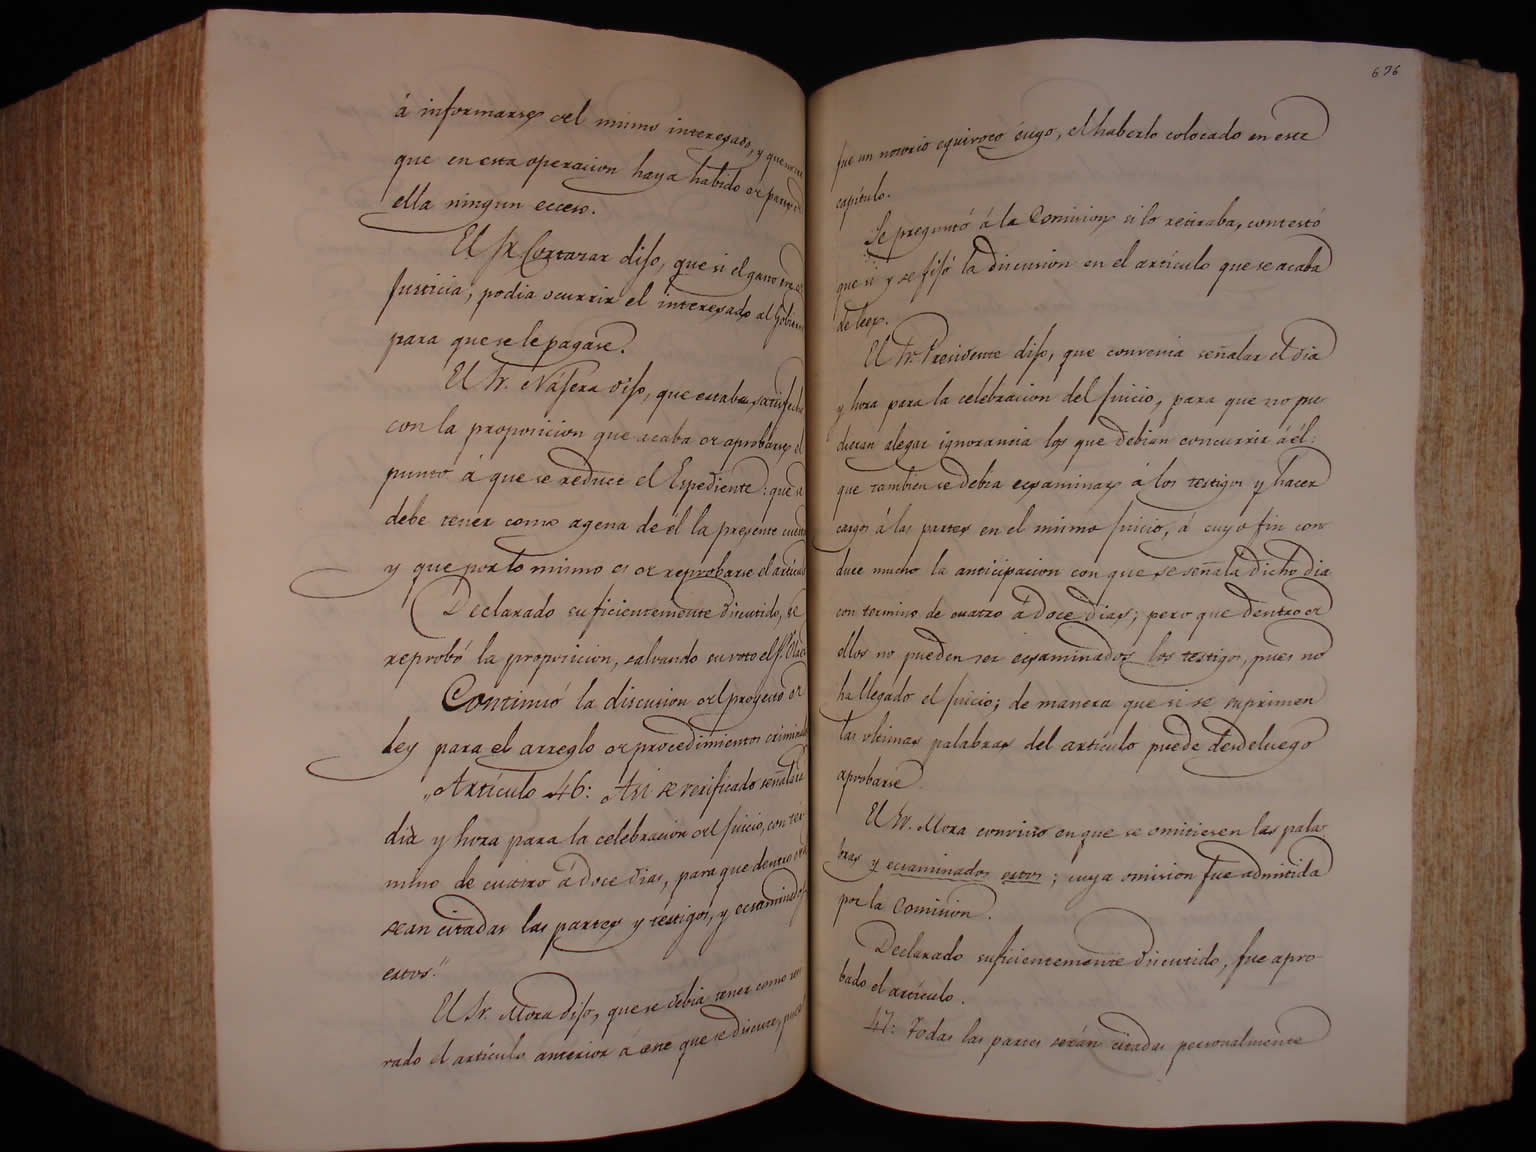 á informarse del mismo interesado, y que no cree
que en esta operacion haya habido de parte de
ella ningun ecceso.
El Sr. Cortazar dijo, que si el ganó en
Justicia, podia ocurrir el interesado al Gobierno
para que se le pagase.
El Sr. Nájera dijo, que estaba satisfecho
con la proposicion que acaba de aprobarse el
punto á que se reduce el Espediente: que se
debe tener como agena de él la presente
y que por lo mismo es de reprobarse el articulo
Declarado suficientemente discutido, se
reprobó la proposicion, salvando su voto el Sr.
Continuó la discusion del proyecto de
Ley para el arreglo de procedimientos criminales
„Artículo 46: Asi se verificado señalará
dia y hora para la celebracion del Juicio, con tér-
mino de cuatro á doce dias, para que dentro
sean citadas las partes y testigos, y ecsaminados
estos."
El Sr. Mora dijo, que se debia tener como
rado el artículo anterior á este que se discute, pues
676
fue un notorio equivoco suyo, el haberlo colocado en este
capítulo.
Se preguntó á la Comision si lo retiraba, contestó
que si y se fijó la discusion en el artículo que se acaba
de leer.
El Sr. Presidente dijo, que convenia señalar el dia
y hora para la celebracion del Juicio, para que no pu-
dieran alegar ignorancia los que debian concurrir á él:
que tambien se debia ecsaminar á los testigos y hacer
cargos á las partes en el mismo Juicio, á cuyo fin con-
duce mucho la anticipacion con que se señala dicho dia
con termino de cuatro á doce dias; pero que dentro de
ellos no pueden ser ecsaminados los testigos, pues no
ha llegado el Juicio; de manera que si se suprimen
las ultimas palabras del artículo puede desde luego
aprobarse.
El Sr. Mora convino en que se omitiesen las pala-
bras y ecsaminados estos; cuya omision fue admitida
por la Comision.
Declarado suficientemente discutido, fue apro-
bado el artículo.
47: Todas las partes serán citadas personalmente